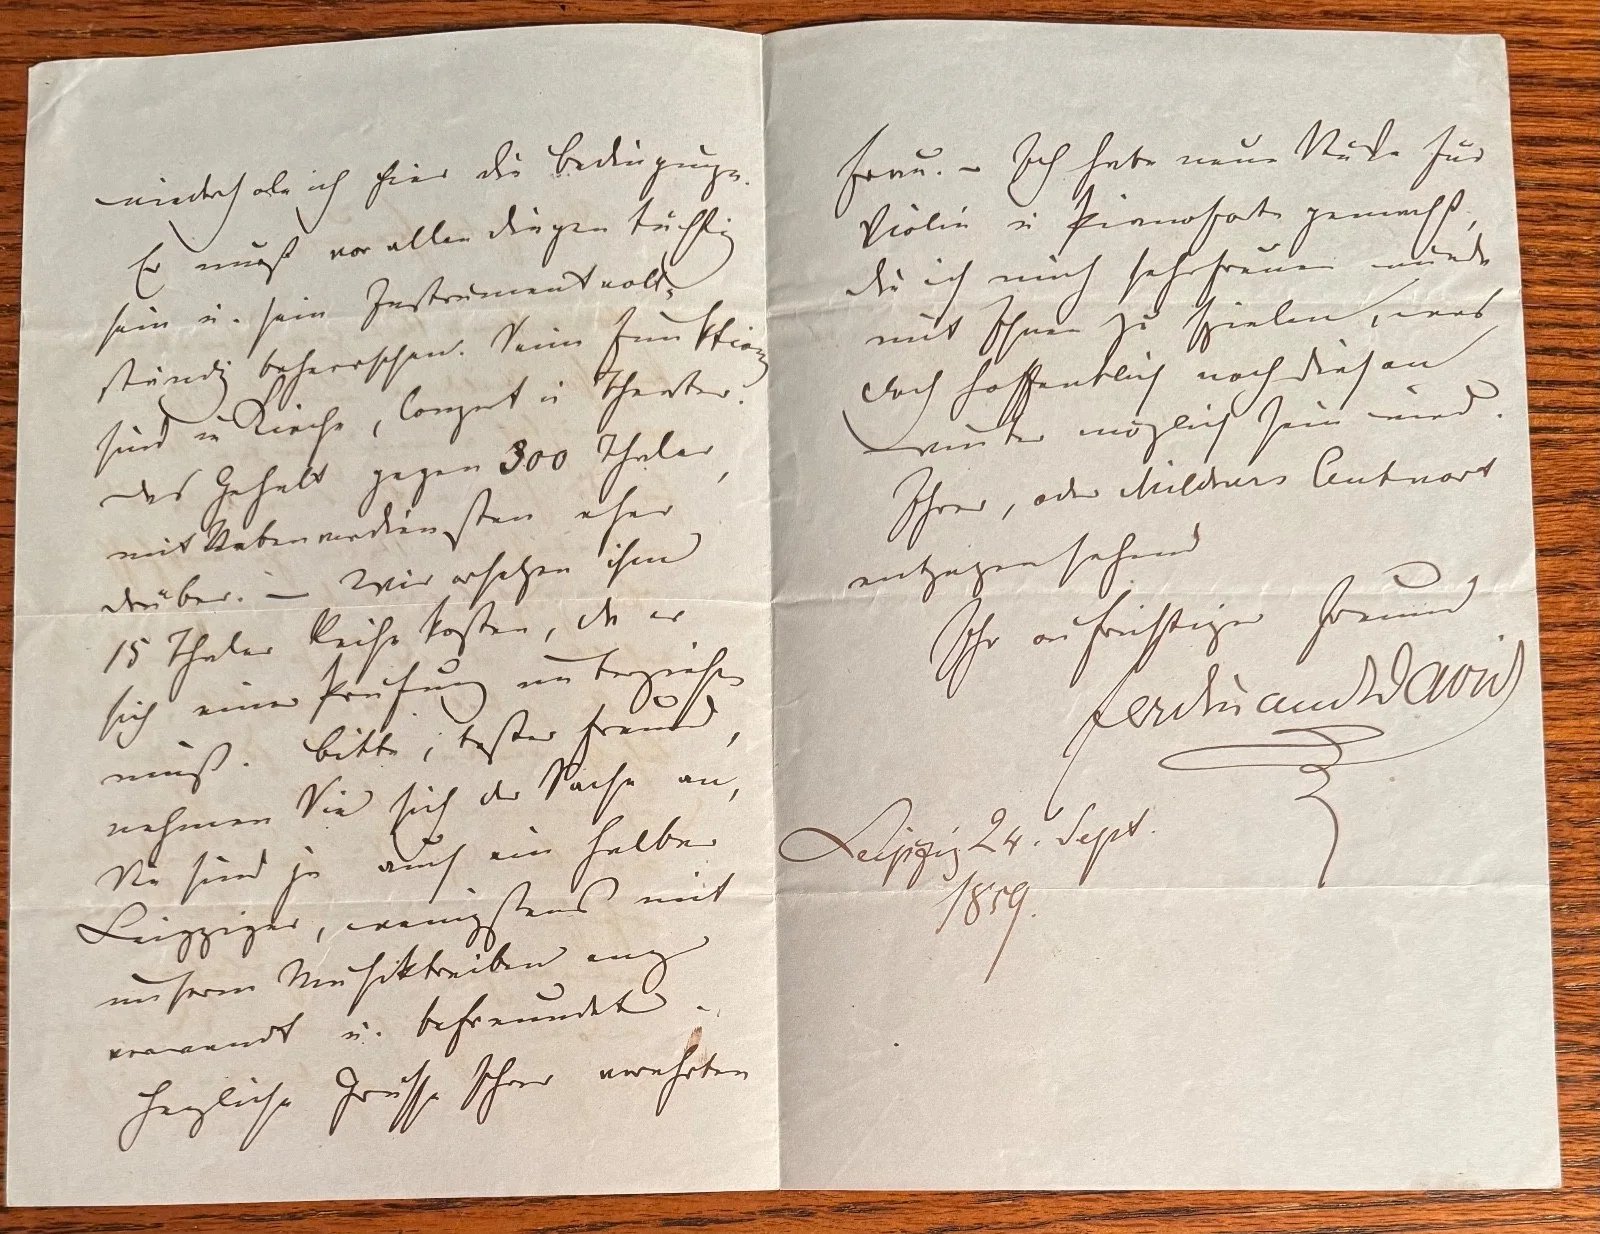 wiederhole ich hier die Bedingungen.
Er muß vor allen Dingen tüchtig
sein u. sein Instrument voll-
ständig beherrschen. Seine Funktionen
sind in Kirche, Conzert u Theater.
das Gehalt gegen 300 Thaler,
mit Nebenverdiensten eher
drüber. — Wir ersetzen ihm
15 Thaler Reisekosten, da er
sich einer Prüfung unterziehen
muß. Bitte, bester Freund,
nehmen Sie sich der Sache an,
Sie sind ja auch ein halber
Leipziger, wenigstens mit
unserem Musiktreiben eng
verwandt u. befreundet.
Herzliche Grüsse Ihrer verehrten
Frau. — Ich habe neue Stücke für
Violin u Pianoforte gemacht,
die ich mich sehr freuen würde
mit Ihnen zu spielen, was
doch hoffentlich noch diesen
Winter möglich sein wird.
Ihrer, oder Mildners Antwort
entgegensehend
Ihr aufrichtiger Freund
Ferdinand David
Leipzig 24. Sept.
1859.